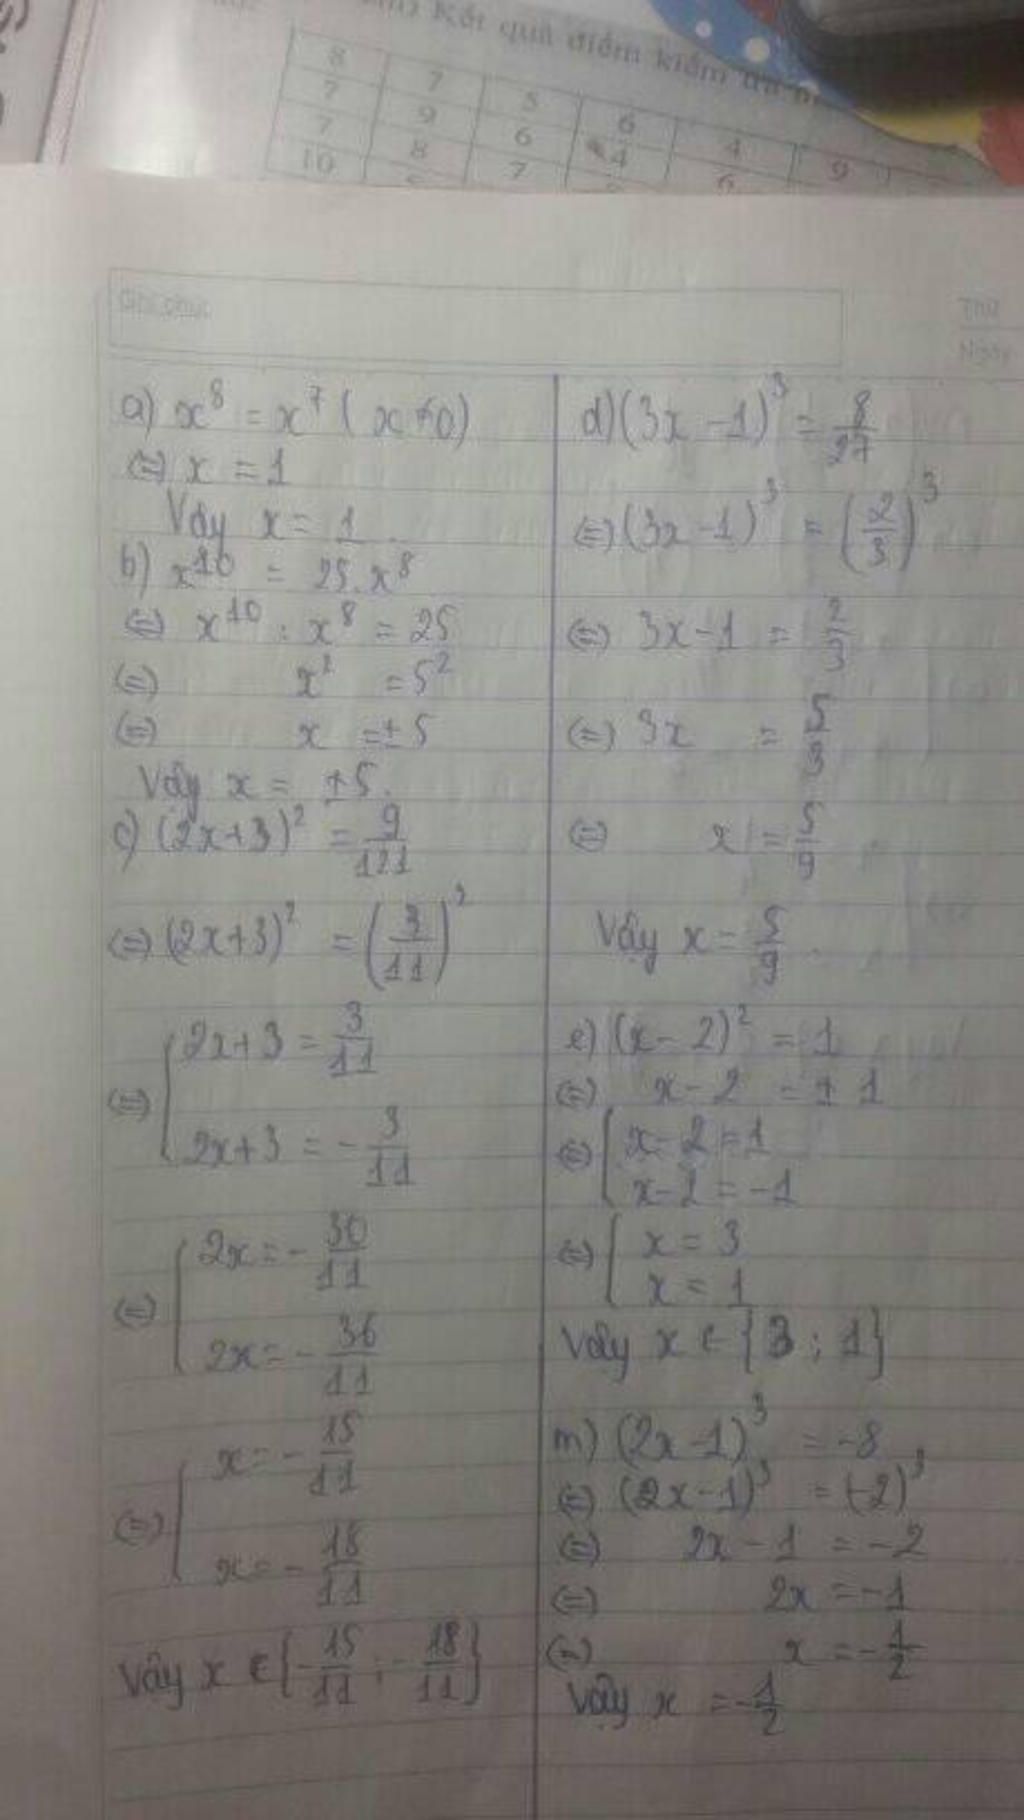 Kết quả điểm kiểm tra
8 7 5 6 4 9
7 9 6 4 6
7 8 7
10
Ghi chú:
Thứ
Ngày
a) x⁸ = x⁷ ( x ≠ 0)
(=) x = 1
Vậy x = 1.
b) x¹⁰ = 25.x⁸
(=) x¹⁰ : x⁸ = 25
(=) x² = 5²
(=) x = ± 5
Vậy x = ±5.
c) (2x+3)² = 9/121
(=) (2x+3)² = (3/11)²
(=) [ 2x+3 = 3/11
2x+3 = - 3/11
(=) [ 2x = - 30/11
2x = - 36/11
(=) [ x = - 15/11
x = - 18/11
Vậy x ∈ {- 15/11 ; - 18/11}
d) (3x - 1)³ = 8/27
(=) (3x - 1)³ = (2/3)³
(=) 3x - 1 = 2/3
(=) 3x = 5/3
(=) x = 5/9
Vậy x = 5/9.
e) (x - 2)² = 1
(=) x - 2 = ± 1
(=) [ x - 2 = 1
x - 2 = -1
(=) [ x = 3
x = 1
Vậy x ∈ {3 ; 1}
m) (2x - 1)³ = -8
(=) (2x - 1)³ = (-2)³
(=) 2x - 1 = -2
(=) 2x = -1
(=) x = - 1/2
Vậy x = - 1/2